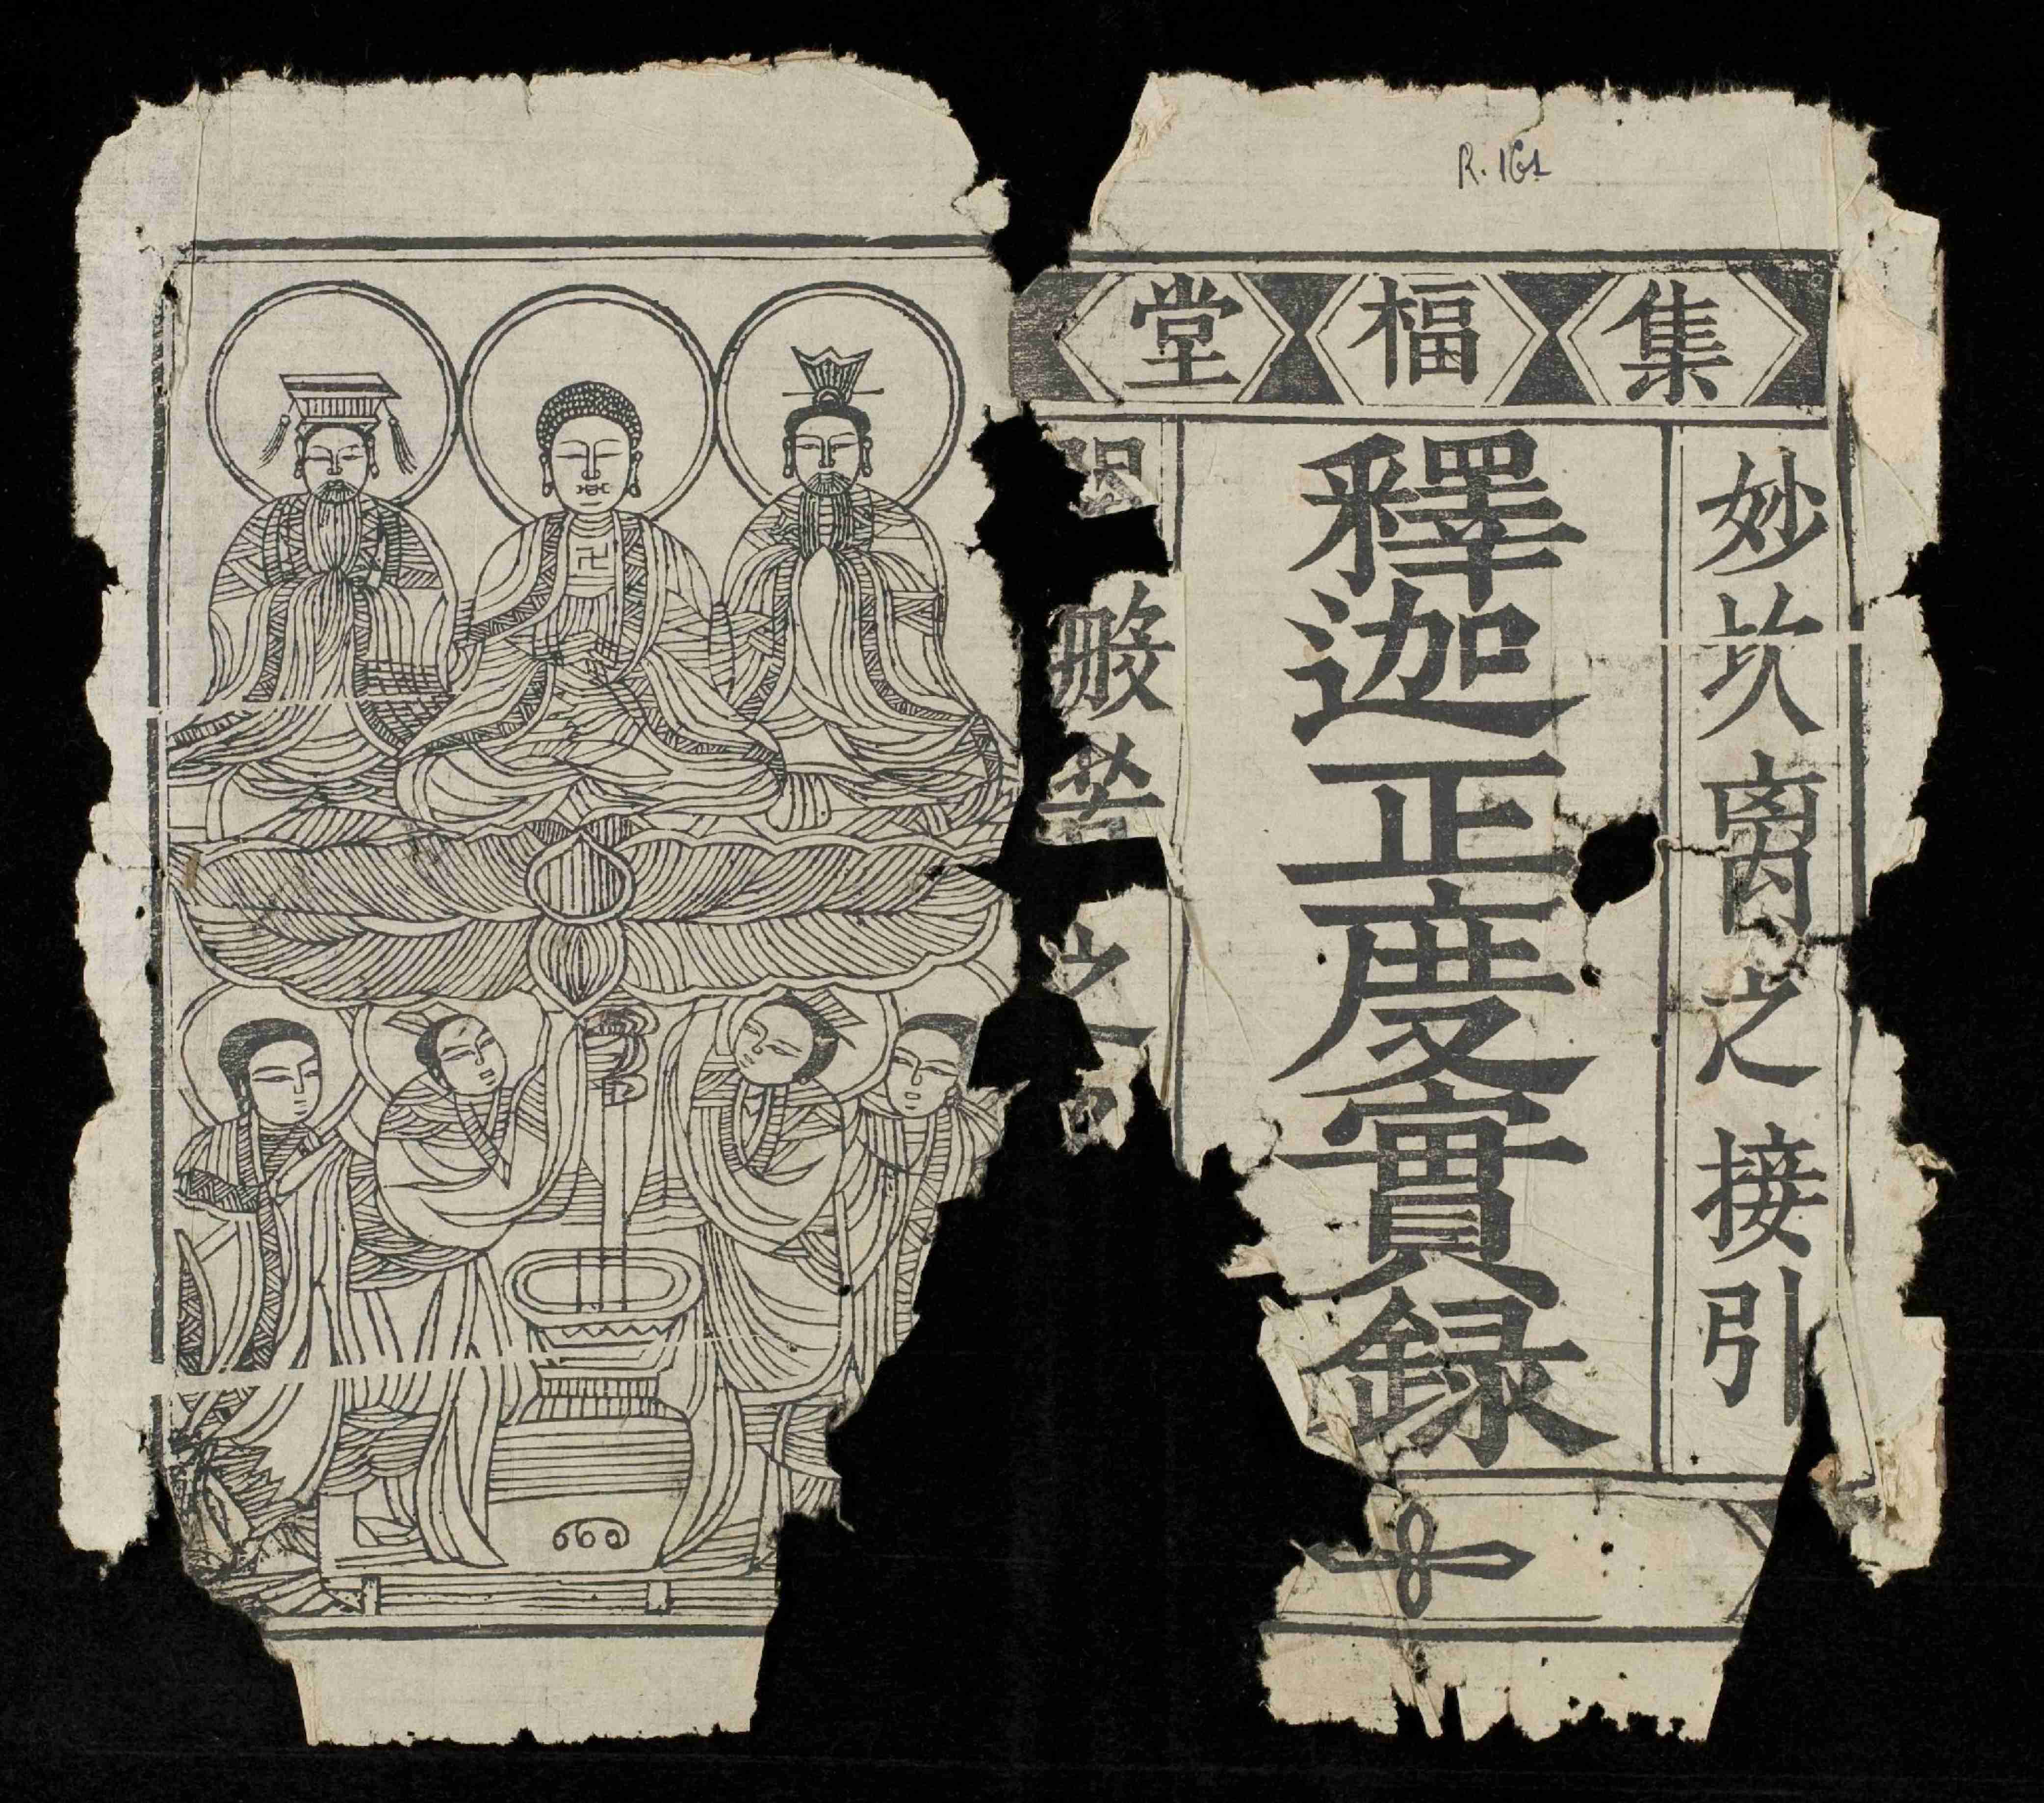 R. 161
集福堂
妙坎离之接引
釋迦正度實録
苦之